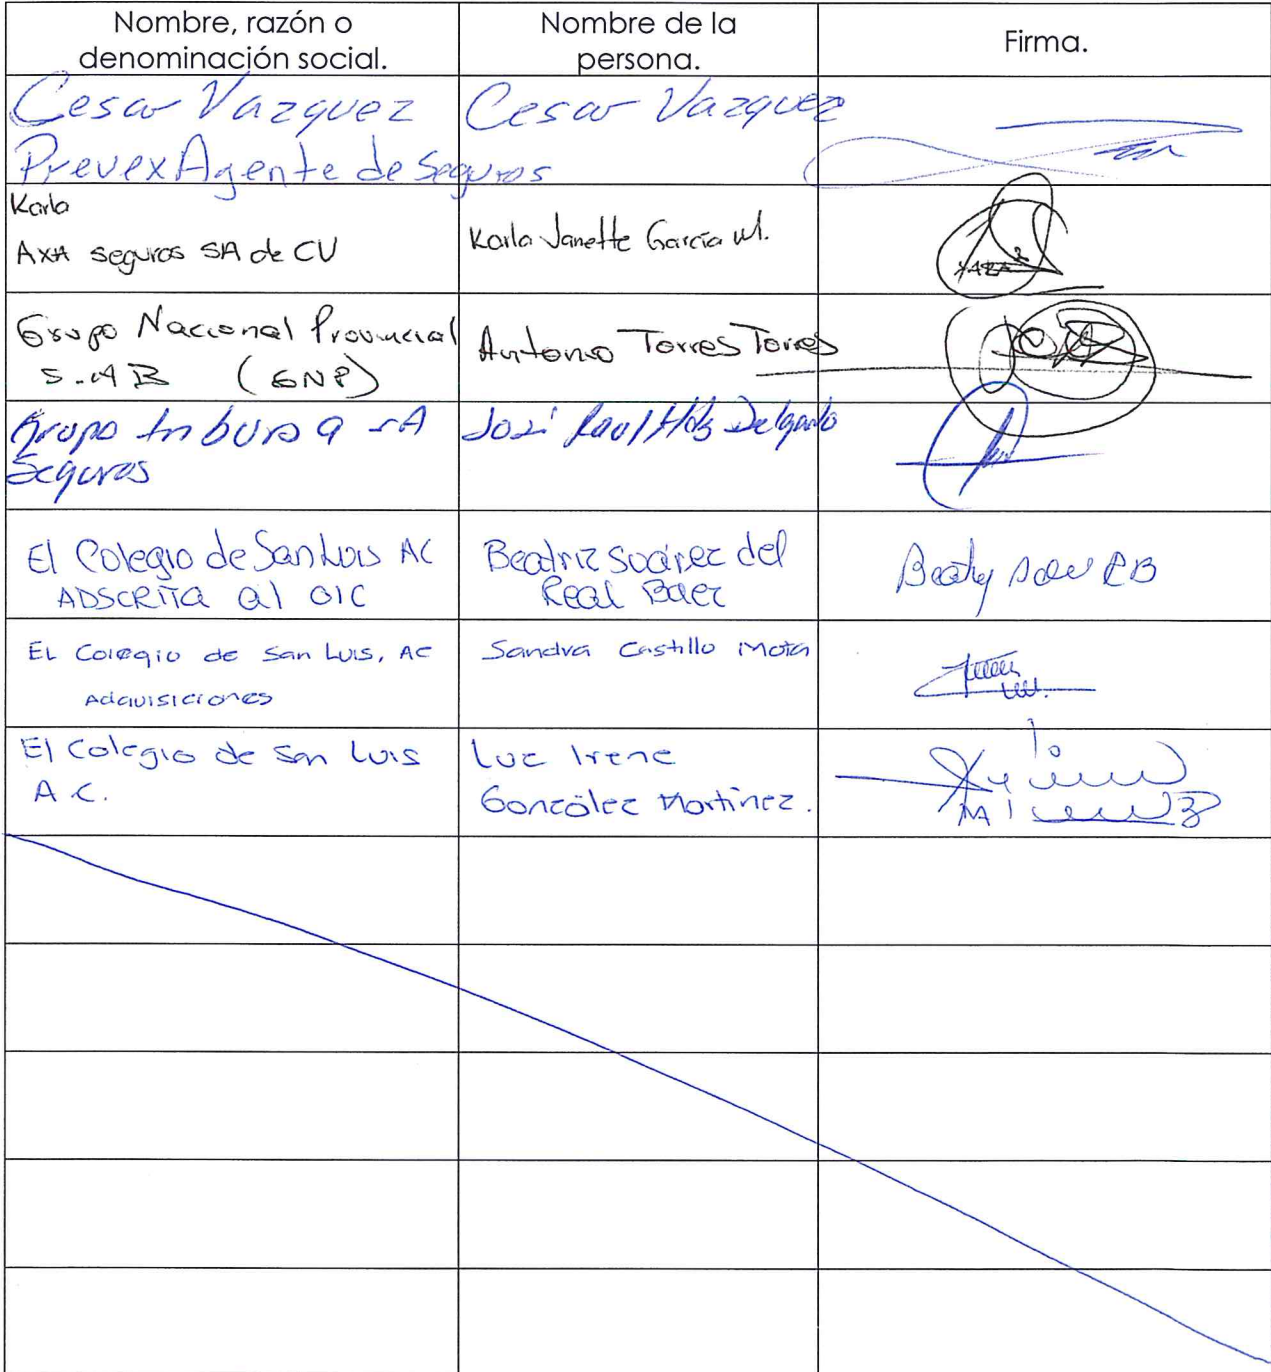 Nombre, razón o
denominación social.
Nombre de la
persona.
Firma.
Cesar Vazquez
Prevex Agente de Seguros
Cesar Vazquez
Karla
AXA seguros SA de CV
Karla Janette García M.
Grupo Nacional Provincial
S.A B (GNP)
Antonio Torres Torres
Grupo Inbursa SA
Seguros
José Raul Delgado
El Colegio de San Luis AC
ADSCRITA al OIC
Beatriz Suárez del
Real Baez
El Colegio de San Luis, AC
Adquisiciones
Sandra Castillo Mota
El Colegio de San Luis
A.C.
Luz Irene
González Martínez.